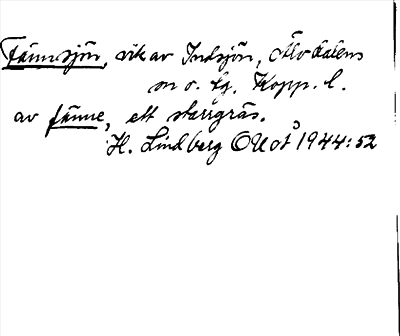 Fännsjön, vik av Indsjön, Älvdalens
m o. lg. Kopp. l.
av fänne, ett starrgräs.
H. Lindberg OUOÅ 1944:52